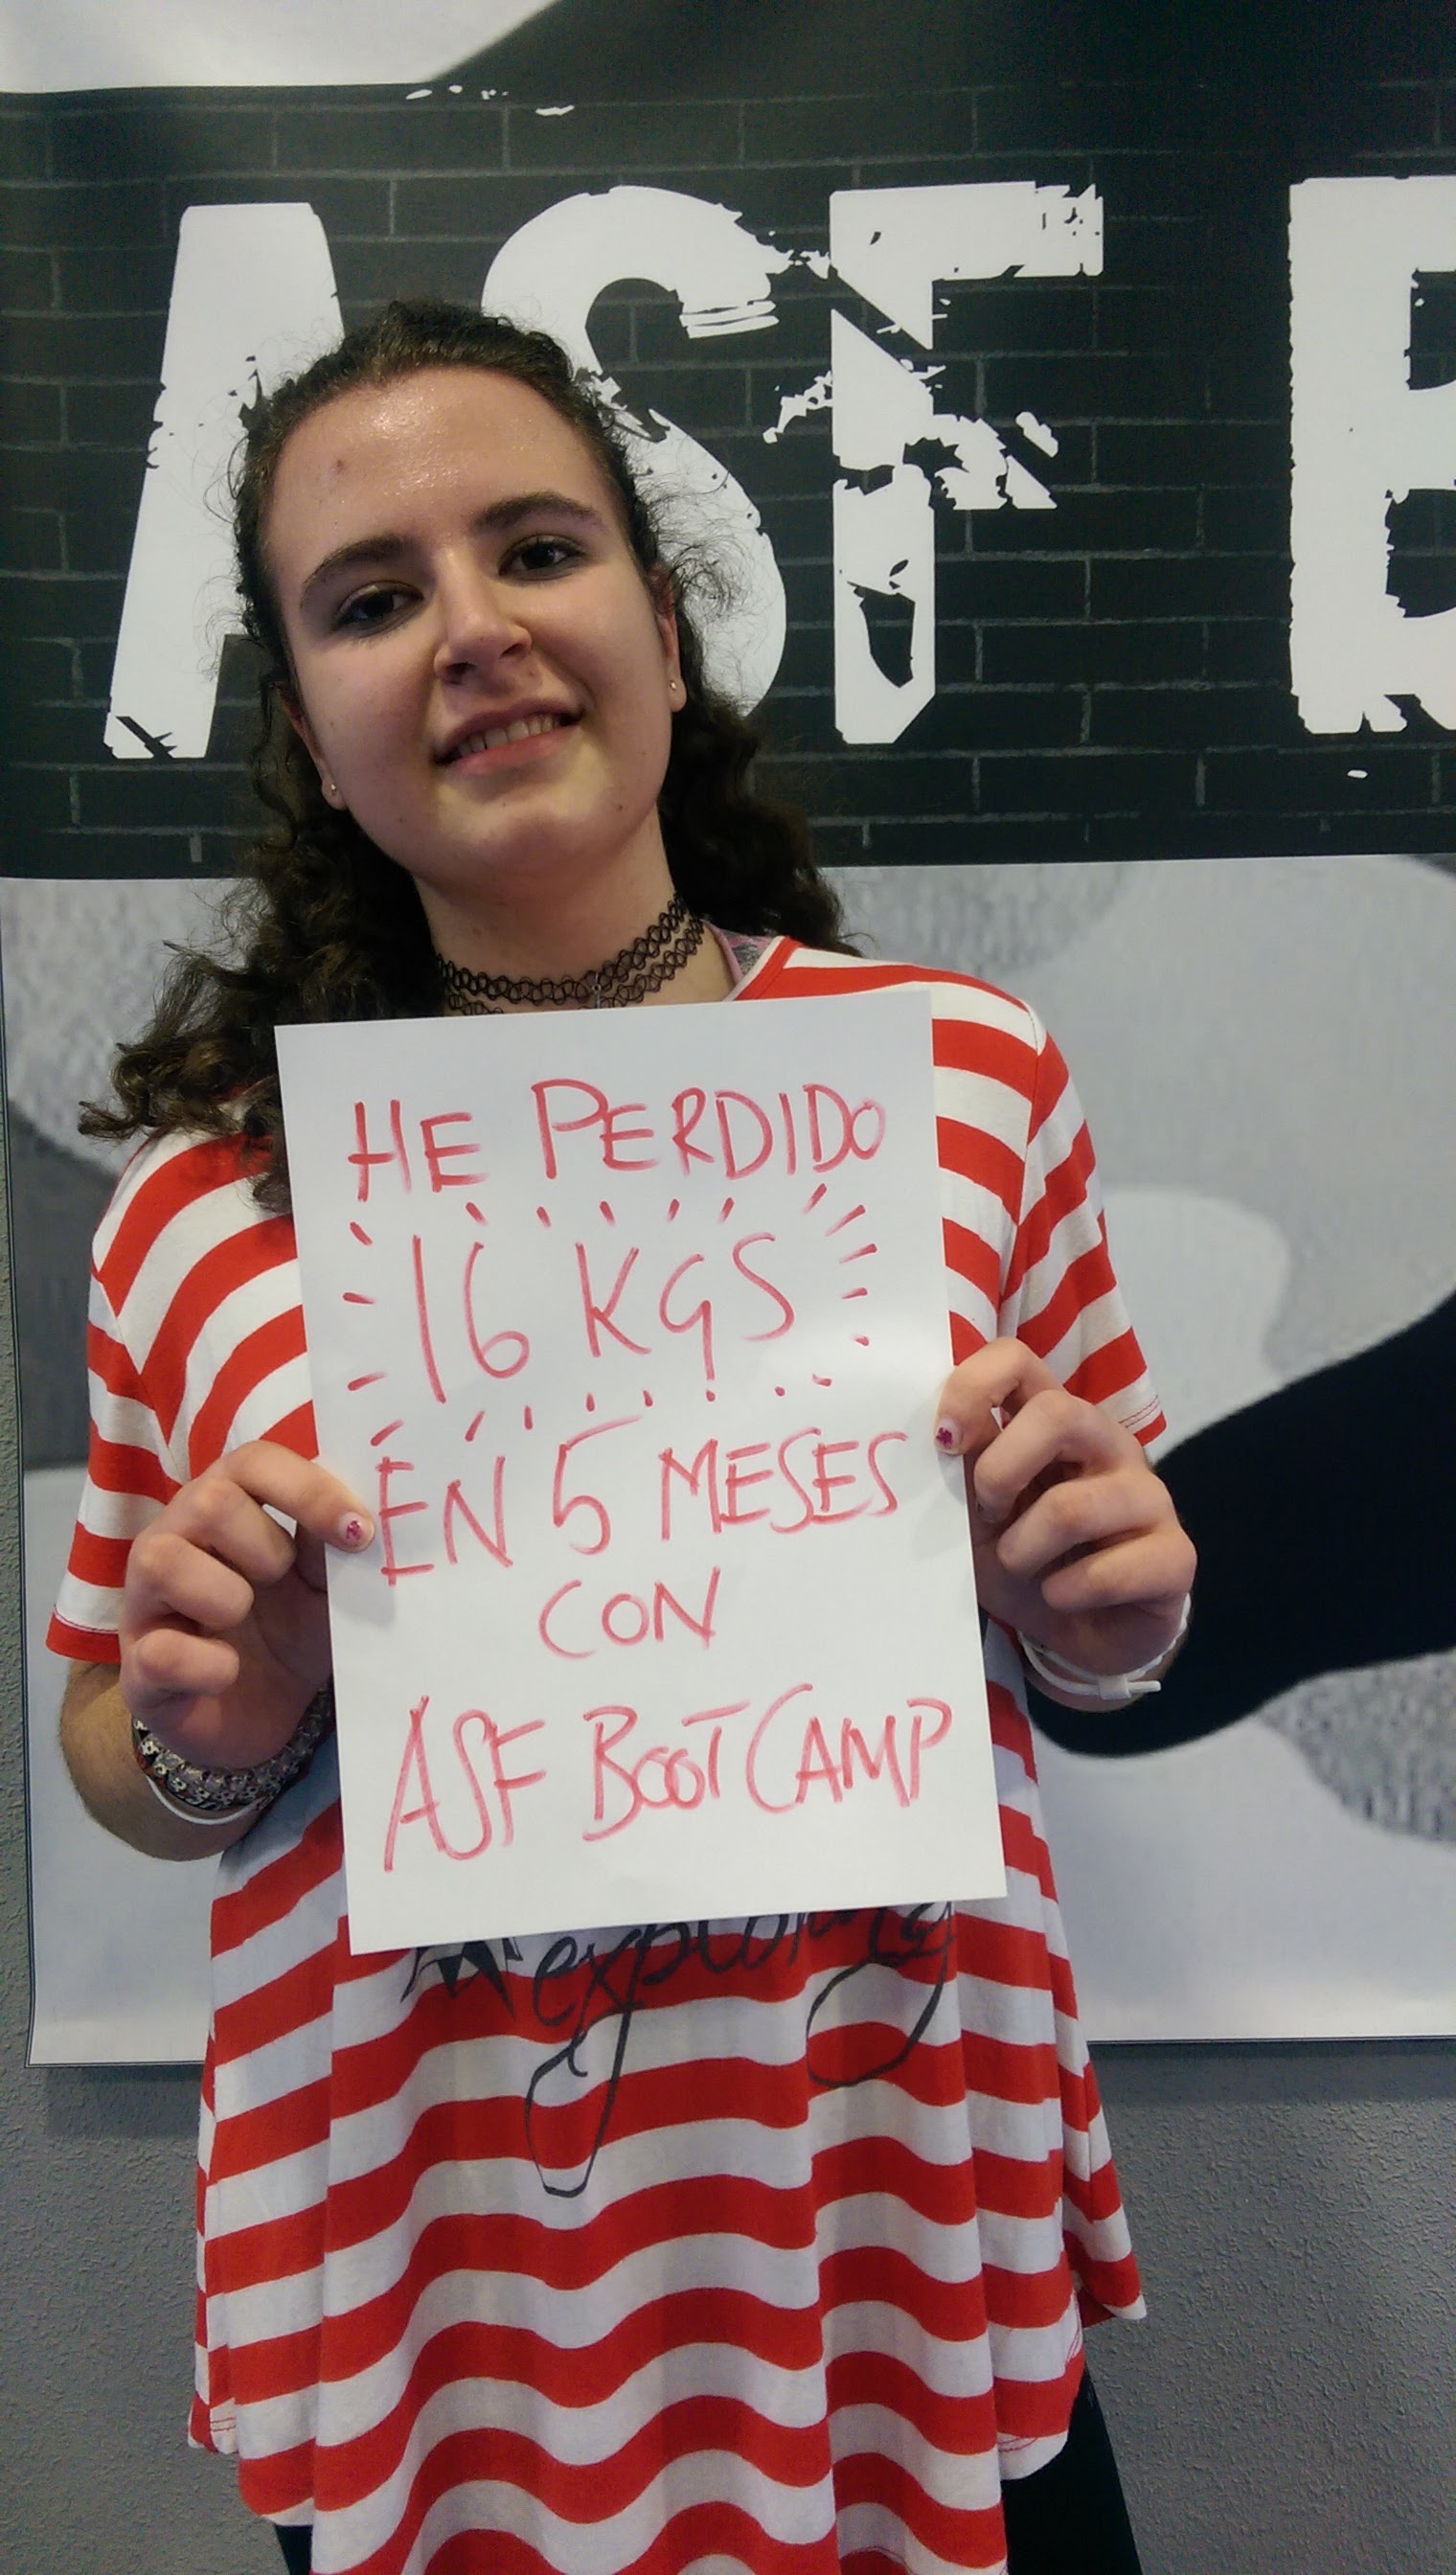 ASF B
HE PERDIDO
16 KGS
EN 5 MESES
CON
ASF BOOTCAMP
exploring